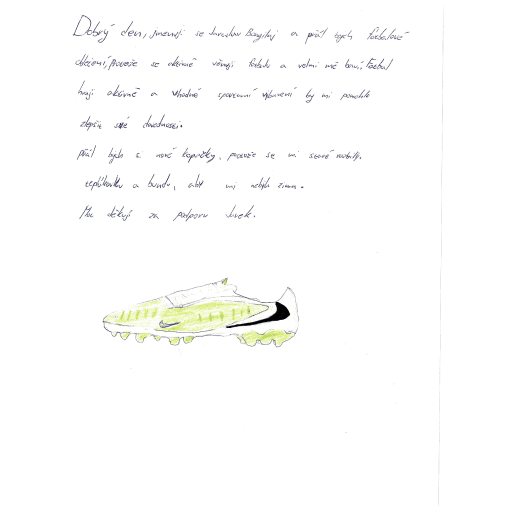 Dobrý den, jmenuji se Jaroslav a přál bych fotbalové
oblečení, protože se aktivně věnuji fotbalu a velmi mě baví. Fotbal
hraji aktivně a vhodné sportovní vybavení by mi pomohlo
zlepšit své dovednosti.
přál bych si nové kopačky, protože se mi staré rozbily.
teplákovku a bundu, aby mi nebyla zima.
Moc děkuji za podporu Jarek.